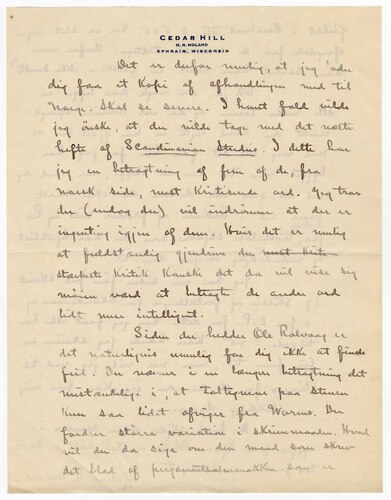 CEDAR HILL
H. R. HOLAND
EPHRAIM, WISCONSIN
Det er derfor mulig, at jeg
dig faa et Kopi af afhandlingen ned til
Norge. Skal se senere. I hvert fald vilde
jeg ønske, at du vilde tage med det næste
hefte af Scandinavian Studies. I dette har
jeg en betragtning af fem af de, fra
norsk side, mest Kritiserede ord. Jeg tror
du (endog du) vil indrömme at der er
ingenting igjen af dem. Hvis det er mulig
at fuldstændig gjendrive den mest Krite-
stærkeste Kritik Kanske det da vil vise sig
möien værd at betragte de andre ord
lidt mere intelligent.
Siden du hedder Ole Rolvaag er
det naturligvis umulig for dig ikke at finde
feil. Du nævner i en længer betragtning det
mistænkelige i, at taltegnene paa stenen
kun saa lidet afviger fra Worms. Du
fordrer större variation i skrivemaaden. Hvad
vil du da sige om den mand som skrev
det blad af pergamentsalmanakken som er